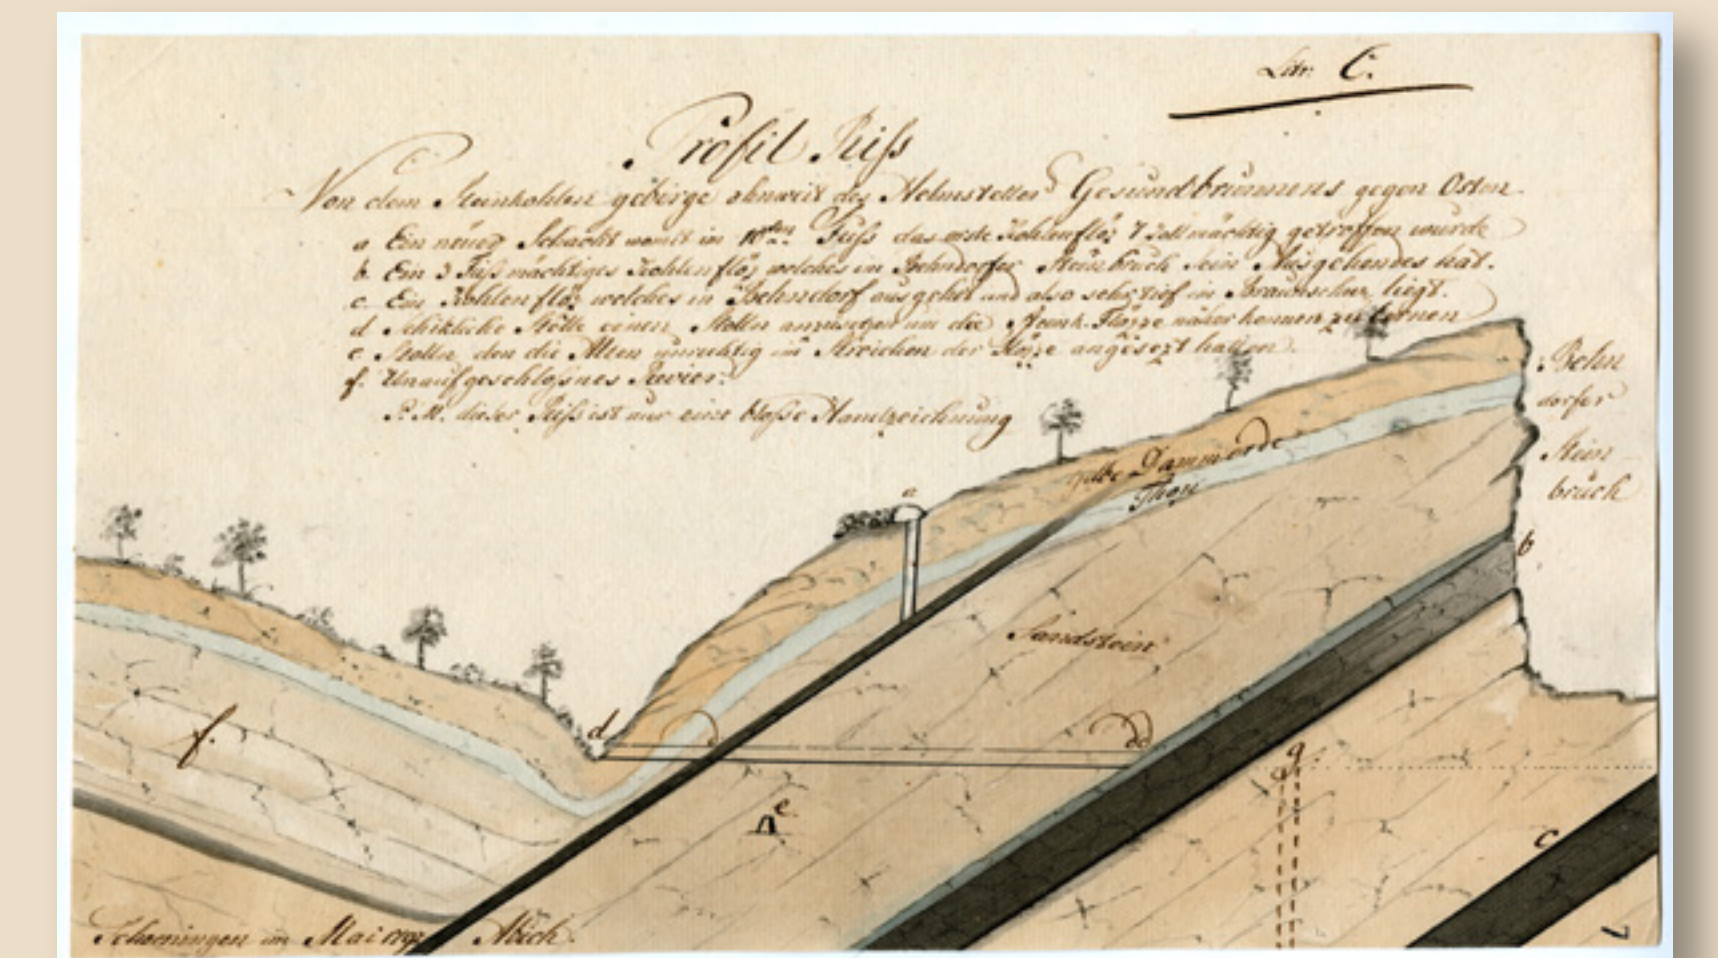 Litr: C.
Profil Riss
Von dem Steinkohlen gebirge ohnweit des Helmstetter Gesundbrunnens gegen Osten.
a Ein neuer Schacht womit im 10ten Fuss das erste Kohlenflöz 7 Zoll mächtig getroffen wurde
b. Ein 3 Fuss mächtiges Kohlenflöz welches im Behndorfer Steinbruch sein Ausgehendes hat.
c. Ein Kohlenflöz welches in Behndorf ausgehet und also sehr tief im liegt.
d Schikliche Stelle einen Stolln anzusetzen um die Steink. Flözze näher kennen zu lernen
e. Stolln, den die Alten unrichtig im Streichen der Flözze angesezt hatten.
f. Unaufgeschlossnes Revier.
P. M. dieser Riss ist nur eine blosse Handzeichnung
Behn
dorfer
Stein
bruch
gelbe Dammerde
Thon
a
b
Sandstein
d
dd
f.
e
g
c
Schoeningen im Mai Abich.
7